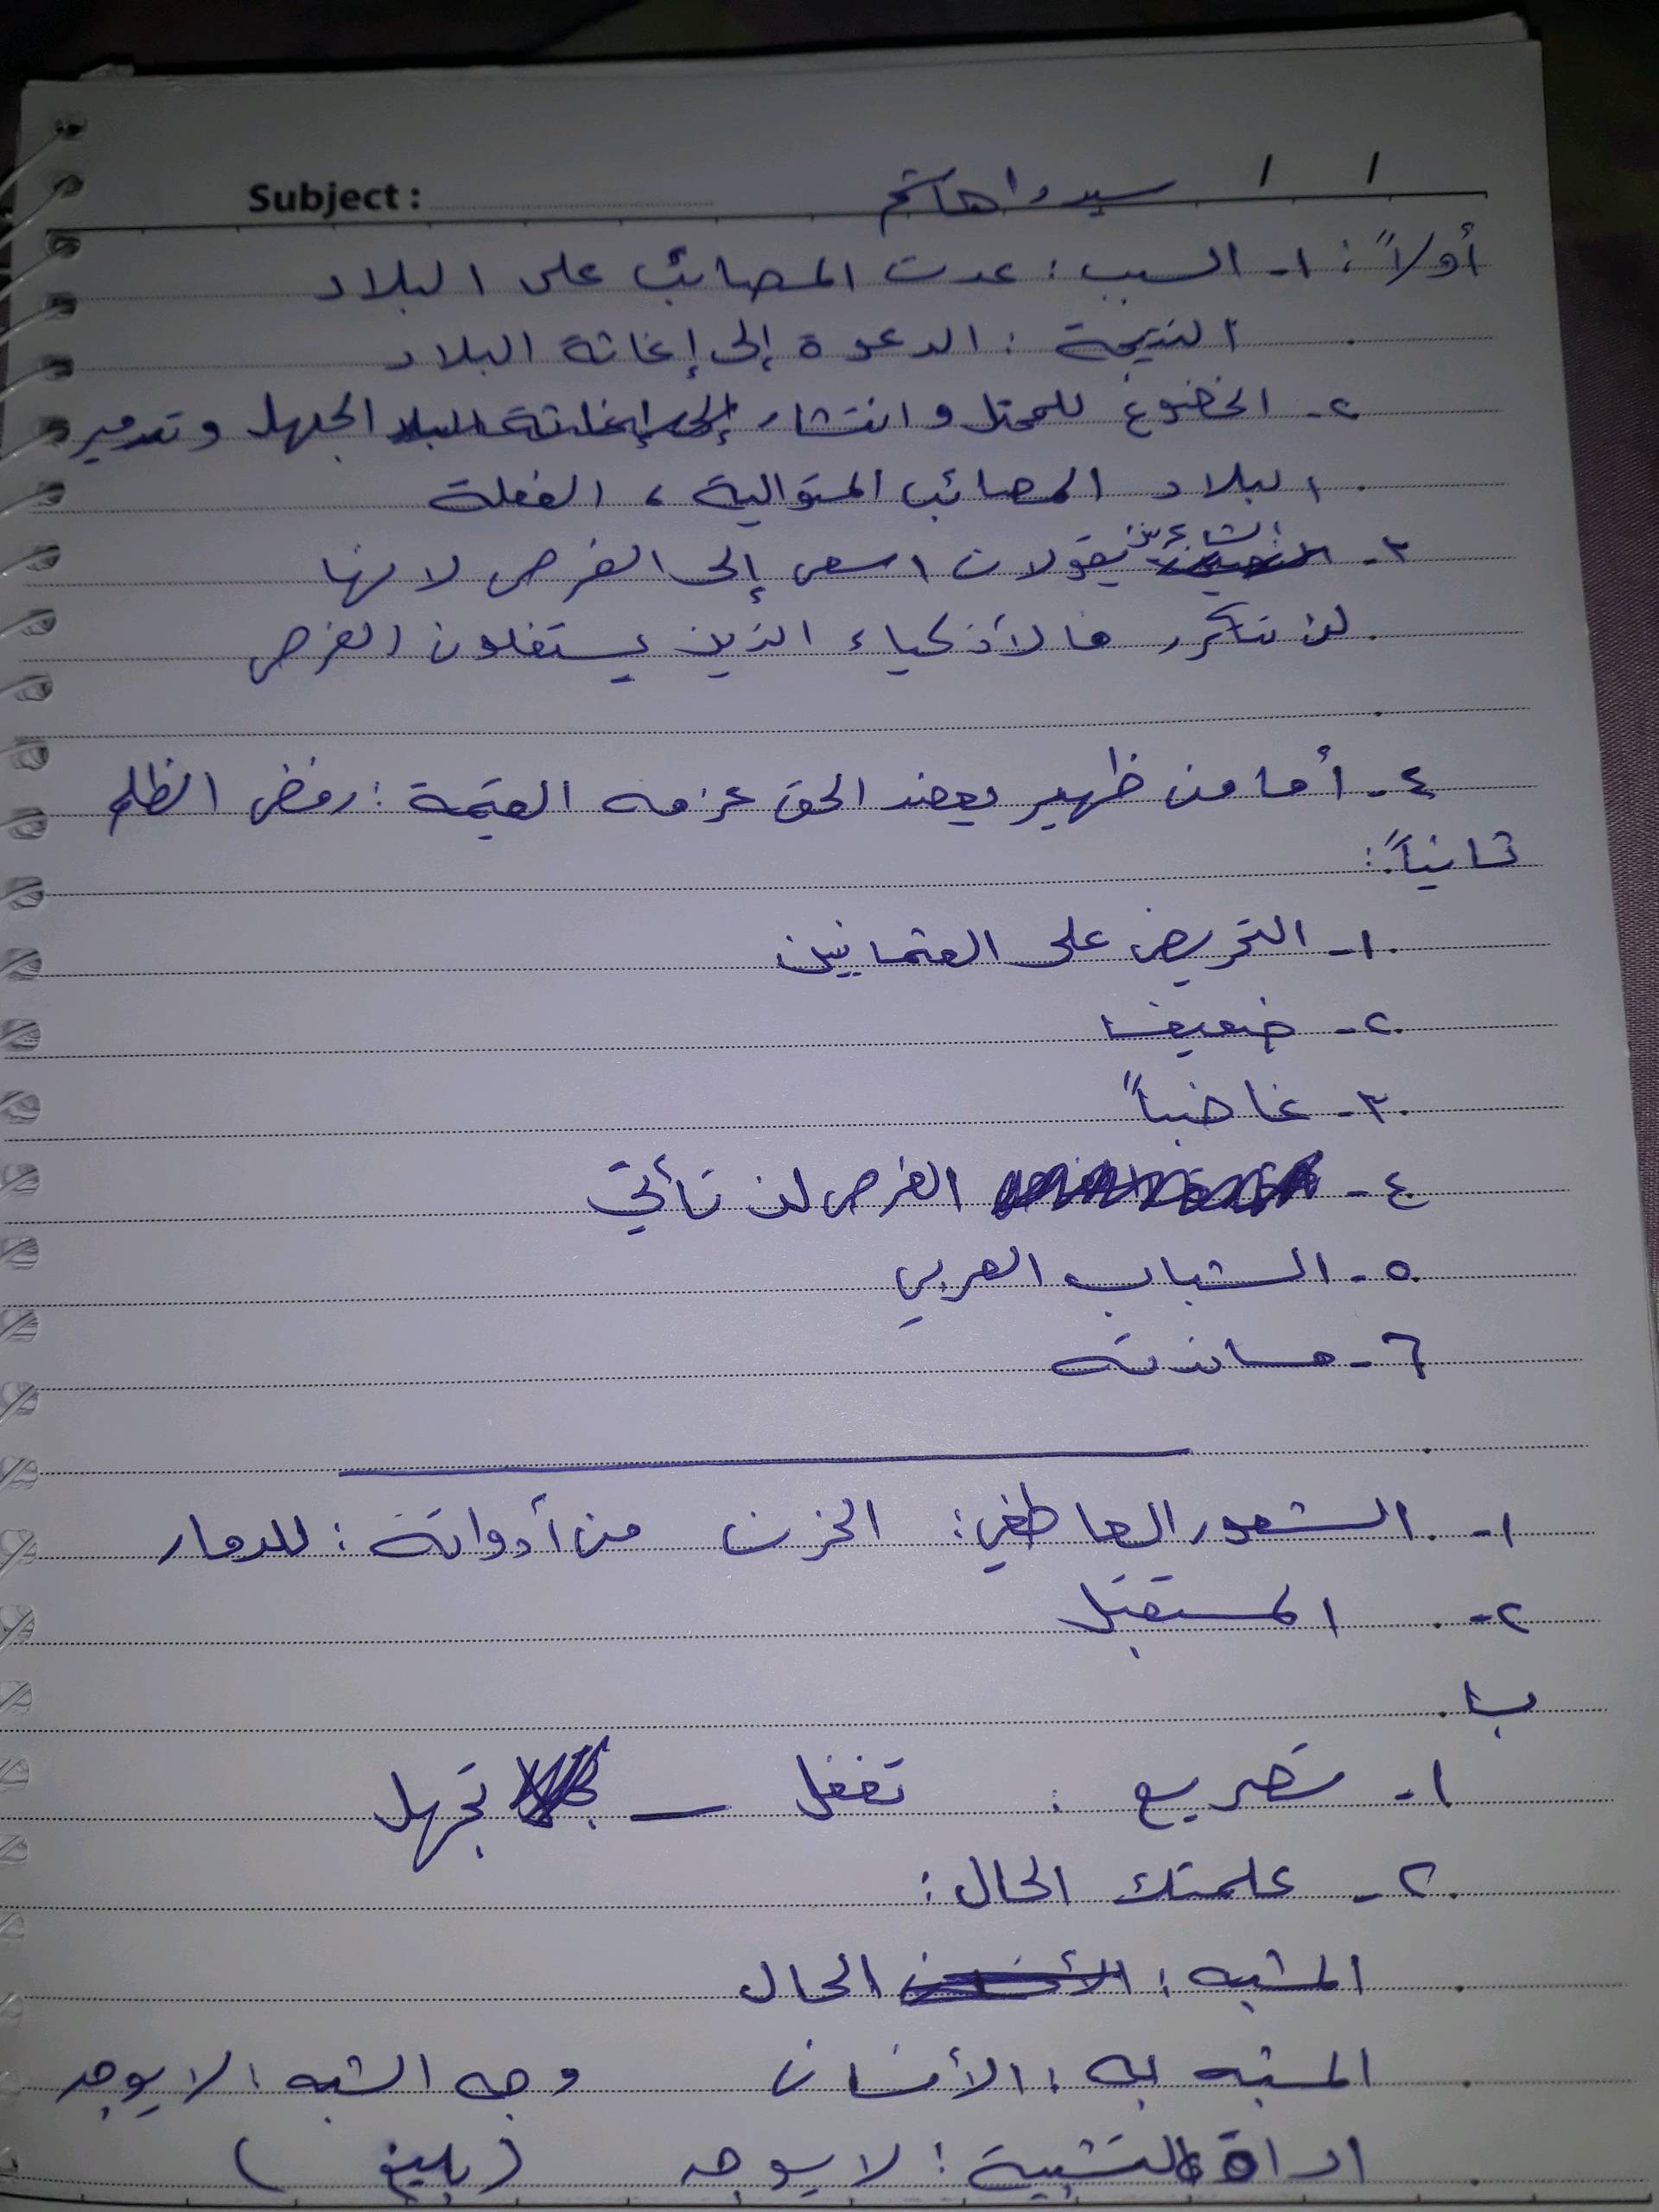 Subject :
سيدرا هاشم / /
أولاً : ١- السبب : عدت المصائب على البلاد
النتيجة : الدعوة إلى إغاثة البلاد
٢- الخضوع للمحتل و انتشار إلى إغاثة البلاد الجهل وتدمير
البلاد المصائب المتوالية ، الغفلة
٣- الشاعرين يقولان اسعى إلى الفرص لانها
لن تتكرر فالأذكياء الذين يستغلون الفرص
٤- أما من ظهير يعضد الحق عزمه القيمة : رفض الظلم
ثانياً :
١- التحريض على العثمانيين
٢- ضعيف
٣- غاضباً
٤- الفرص لن تأتي
٥- الشباب العربي
٦- مساندته
١- الشعور العاطفي : الحزن من أدواته : للدمار
٢- المستقبل
ب
١- تصريع : تغفل - تجهل
٢- علمتك الحال :
المشبه : الحال
المشبه به : الأنسان وجه الشبه : لا يوجد
اداة التشبية : لا يوجد ( بليغ )